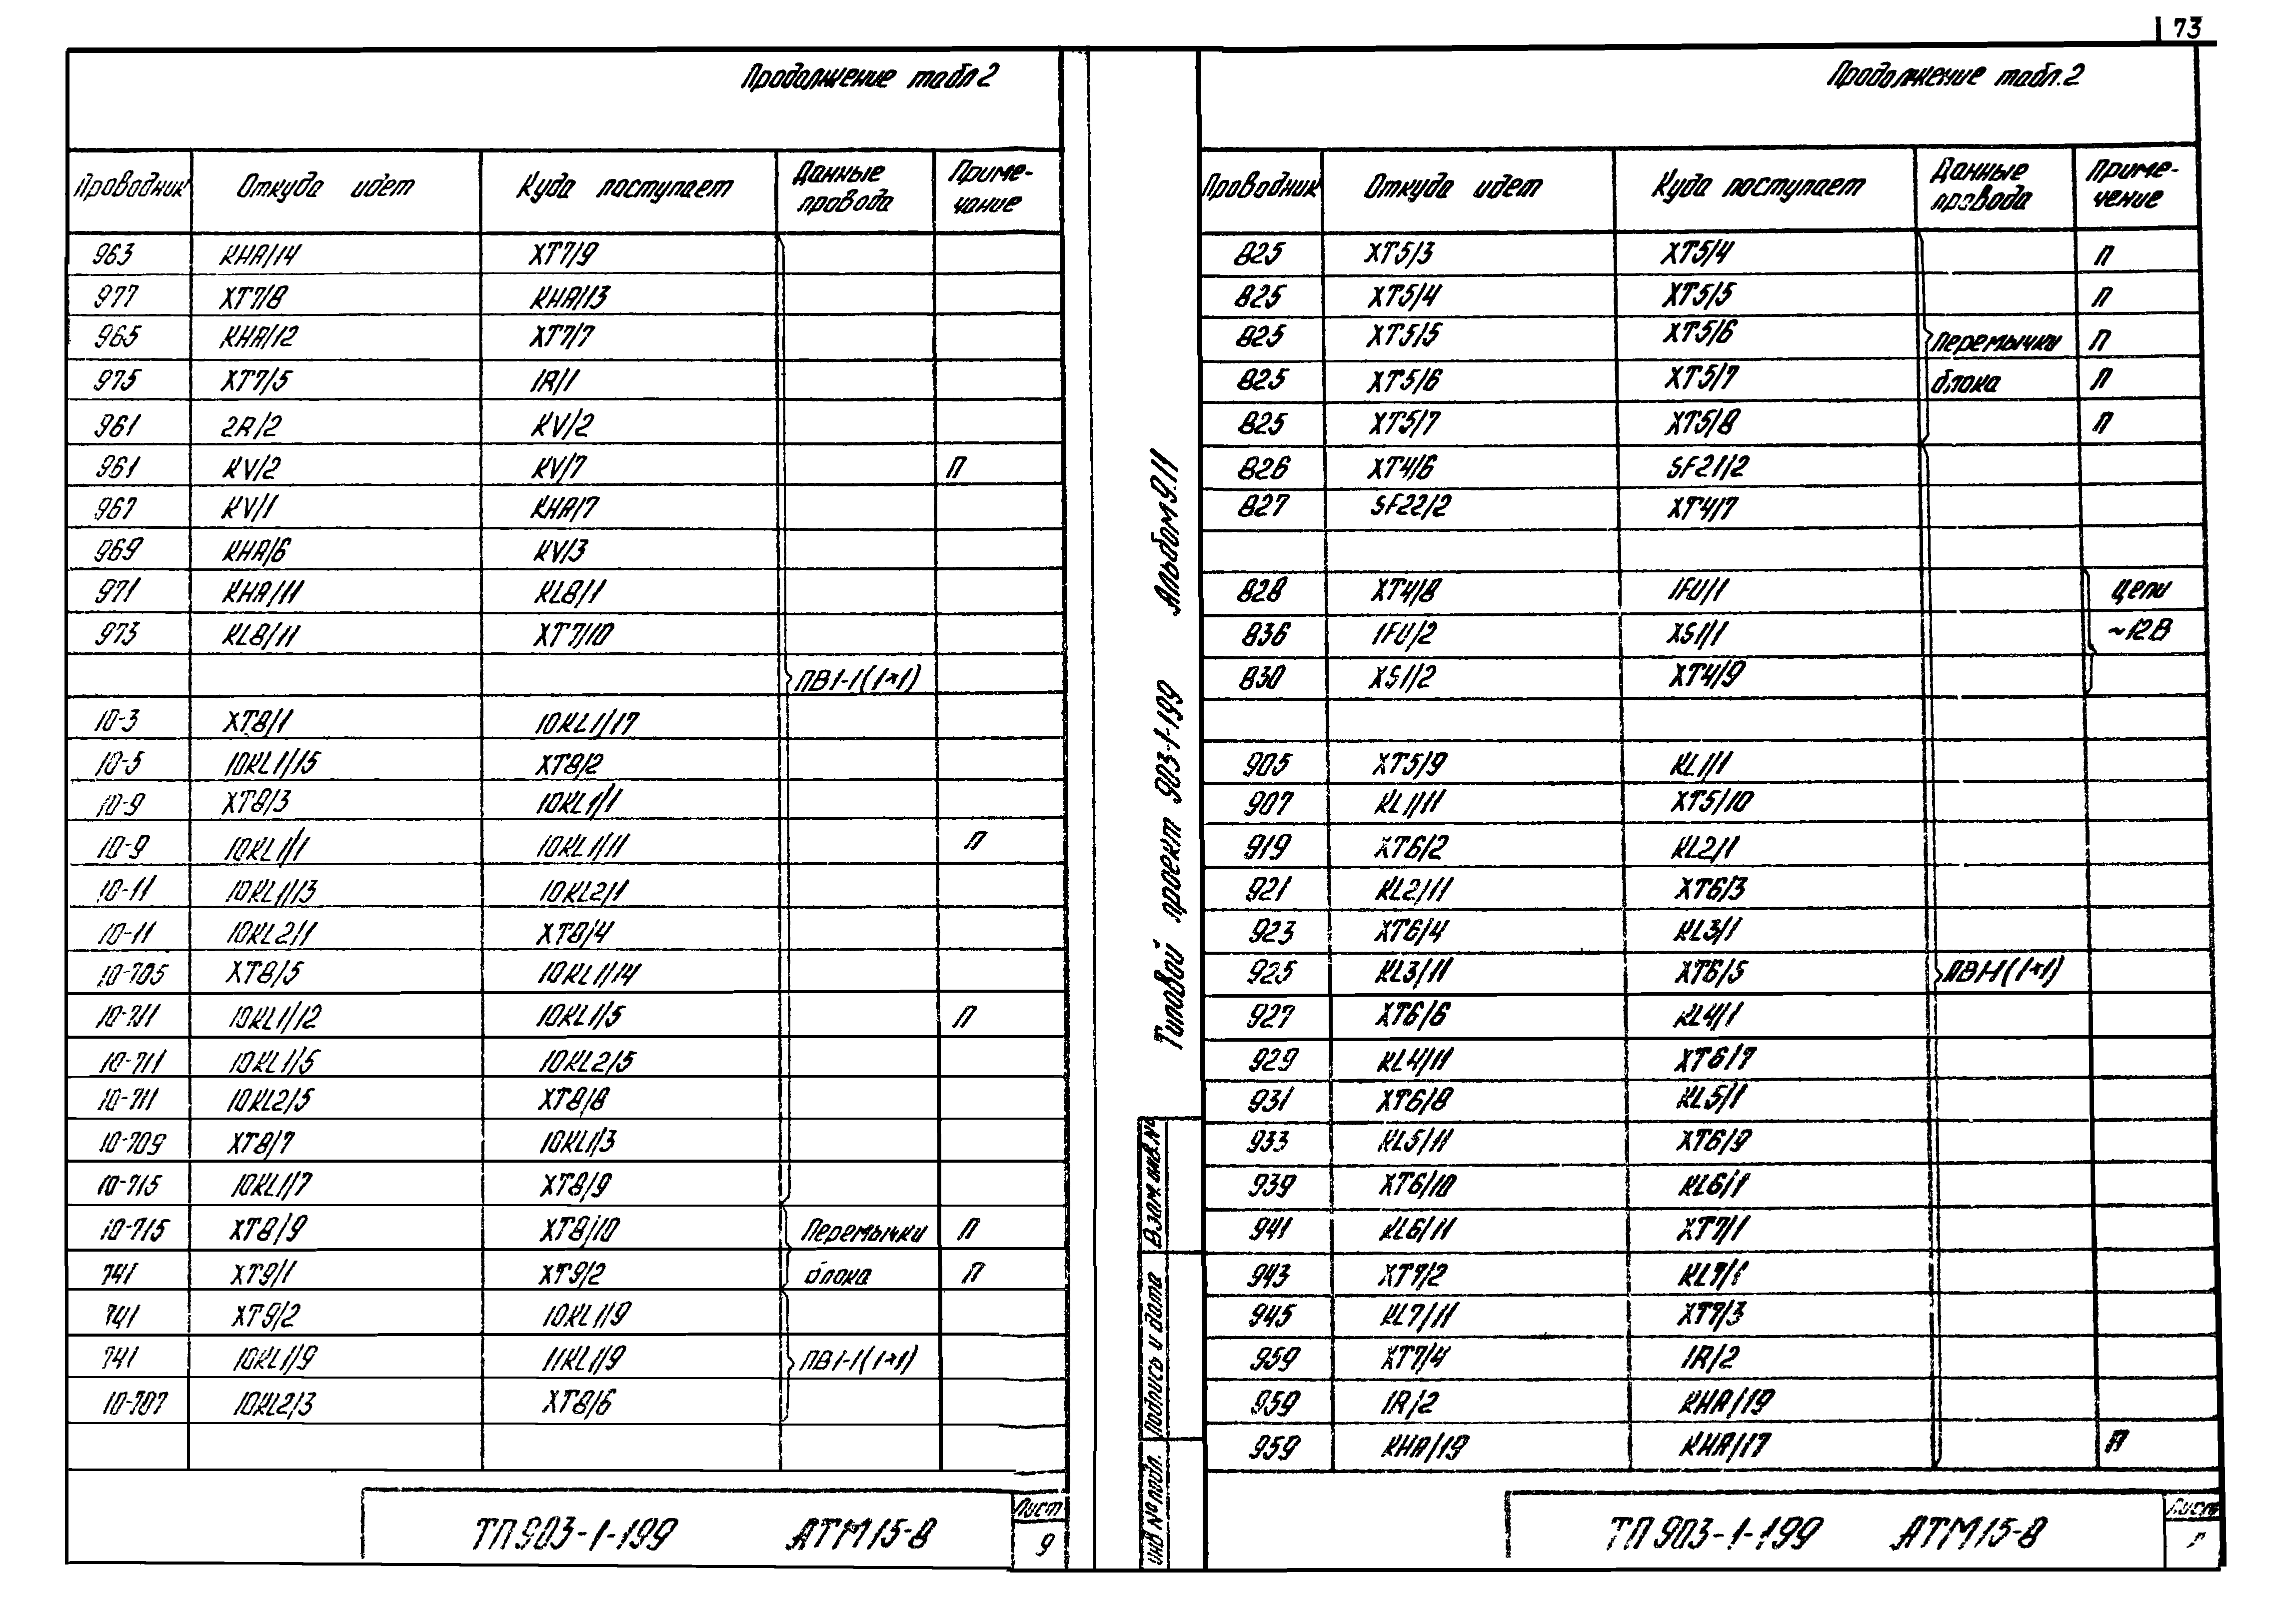 73
Продолжение табл 2
Проводник Откуда идет Куда поступает Данные провода Приме-чание
963 КНА/14 XT7/9
977 XT7/8 КНА/13
965 КНА/12 XT7/7
975 XT7/5 1R/1
961 2R/2 KV/2
961 KV/2 KV/7 П
967 KV/1 КНА/7
969 КНА/6 KV/3
971 КНА/11 KL8/1
973 KL8/11 XT7/10
ПВ1-1(1*1)
10-3 XT8/1 10KL1/17
10-5 10KL1/15 XT8/2
10-9 XT8/3 10KL1/1
10-9 10KL1/1 10KL1/11 П
10-11 10KL1/13 10KL2/1
10-11 10KL2/1 XT8/4
10-705 XT8/5 10KL1/14
10-711 10KL1/12 10KL1/5 П
10-711 10KL1/5 10KL2/5
10-711 10KL2/5 XT8/8
10-709 XT8/7 10KL1/3
10-715 10KL1/7 XT8/9
10-715 XT8/9 XT8/10 Перемычки П
741 XT9/1 XT9/2 блока П
741 XT9/2 10KL1/9
741 10KL1/9 11KL1/9 ПВ1-1(1*1)
10-707 10KL2/3 XT8/6
ТП903-1-199 АТМ15-8
Лист
9
Альбом 9.11
Типовой проект 903-1-199
Взам.инв.№
Подпись и дата
Инв № подл.
Продолжение табл.2
Проводник Откуда идет Куда поступает Данные провода Приме-чение
825 XT5/3 XT5/4 П
825 XT5/4 XT5/5 П
825 XT5/5 XT5/6 Перемычки П
825 XT5/6 XT5/7 блока П
825 XT5/7 XT5/8 П
826 XT4/6 SF21/2
827 SF22/2 XT4/7
828 XT4/8 1FU/1 Цепи
836 1FU/2 XS1/1 ~12В
830 XS1/2 XT4/9
905 XT5/9 KL1/1
907 KL1/11 XT5/10
919 XT6/2 KL2/1
921 KL2/11 XT6/3
923 XT6/4 KL3/1
925 KL3/11 XT6/5 ПВ1-1(1*1)
927 XT6/6 KL4/1
929 KL4/11 XT6/7
931 XT6/8 KL5/1
933 KL5/11 XT6/9
939 XT6/10 KL6/1
941 KL6/11 XT7/1
943 XT7/2 KL7/1
945 KL7/11 XT7/3
959 XT7/4 1R/2
959 1R/2 КНА/19
959 КНА/19 КНА/17 П
ТП903-1-199 АТМ15-8
Лист